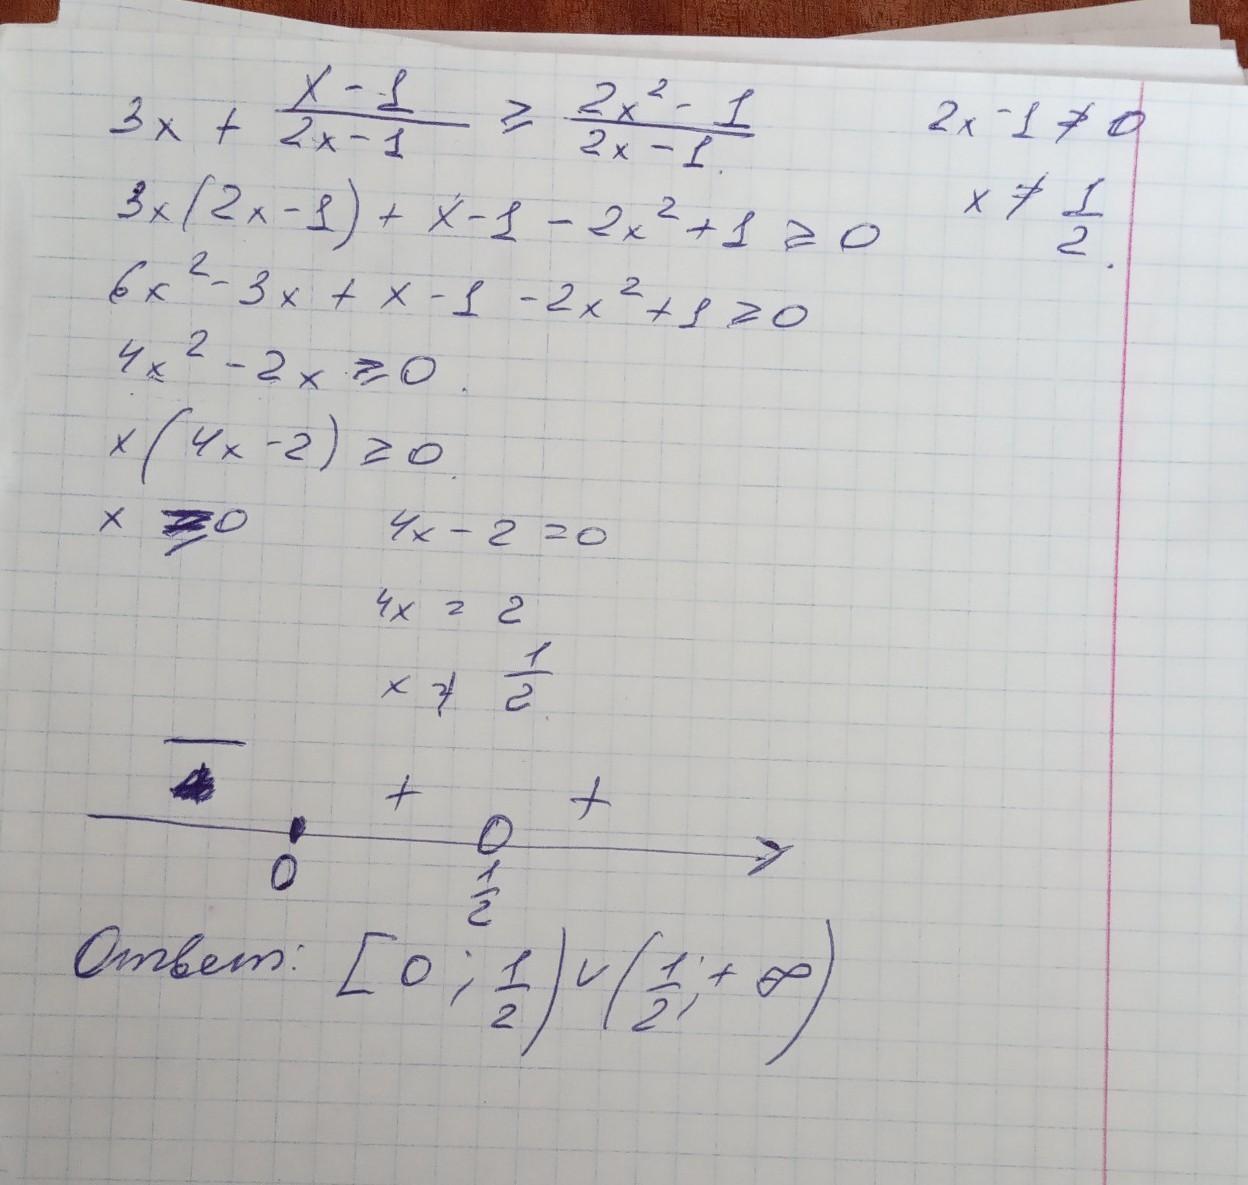 3x + (x-1)/(2x-1) ≥ (2x²-1)/(2x-1). 2x-1≠0
3x(2x-1) + x-1 - 2x²+1 ≥ 0 x ≠ 1/2.
6x² - 3x + x - 1 - 2x² + 1 ≥ 0
4x² - 2x ≥ 0.
x(4x-2) ≥ 0.
x ≥ 0 4x - 2 = 0
4x = 2
x ≠ 1/2.
− + +
0 1/2
Ответ: [0; 1/2) ∪ (1/2; +∞)